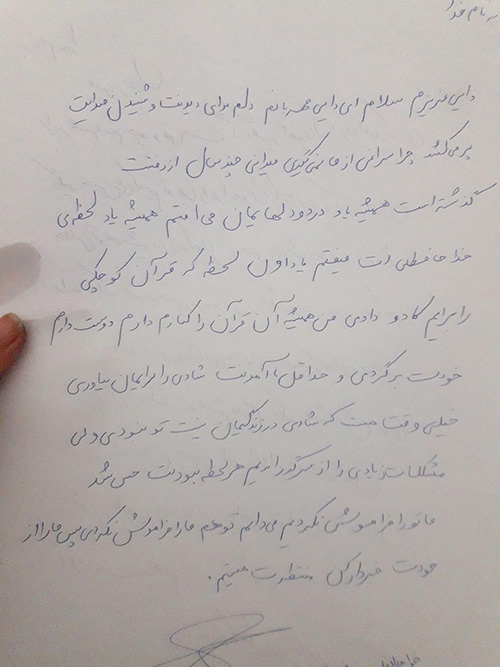 به نام خدا
دایی عزیزم سلام ای دایی مهربانم دلم برای دیدنت و شنیدن صدایت
پر می‌کشد چرا سراغی از ما نمی‌گیری میدانی چند سال از رفتنت
گذشته است همیشه یاد درددلهایمان می‌افتم همیشه یاد لحظه‌ی
خداحافظی ات میفتم یاد اون لحظه که قرآن کوچکی
را برایم کادو دادی من همیشه آن قرآن را کنارم دارم دوست دارم
خودت برگردی و حداقل با آمدنت شادی را برایمان بیاوری
خیلی وقت است که شادی در زندگیمان نیست تو نبودی ولی
مشکلات زیادی را از سر گذراندیم هر لحظه نبودنت حس شد
ما تو را فراموش نکردیم می‌دانم تو هم ما را فراموش نکردی پس ما را از
خودت خبردار کن منتظرت هستیم.